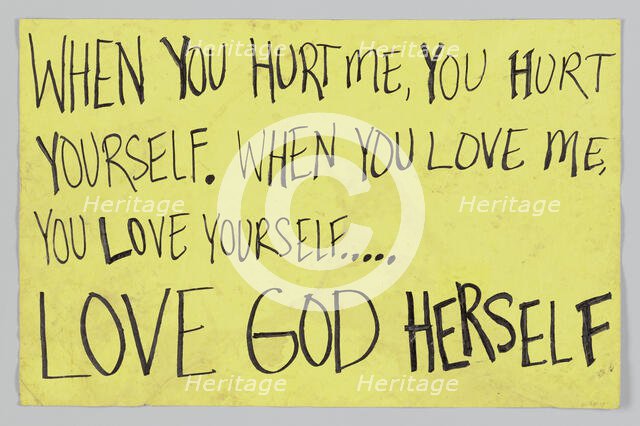 WHEN YOU HURT ME, YOU HURT
YOURSELF. WHEN YOU LOVE ME,
YOU LOVE YOURSELF.....
LOVE GOD HERSELF
Heritage Heritage
Heritage Heritage
Heritage Heritage
©